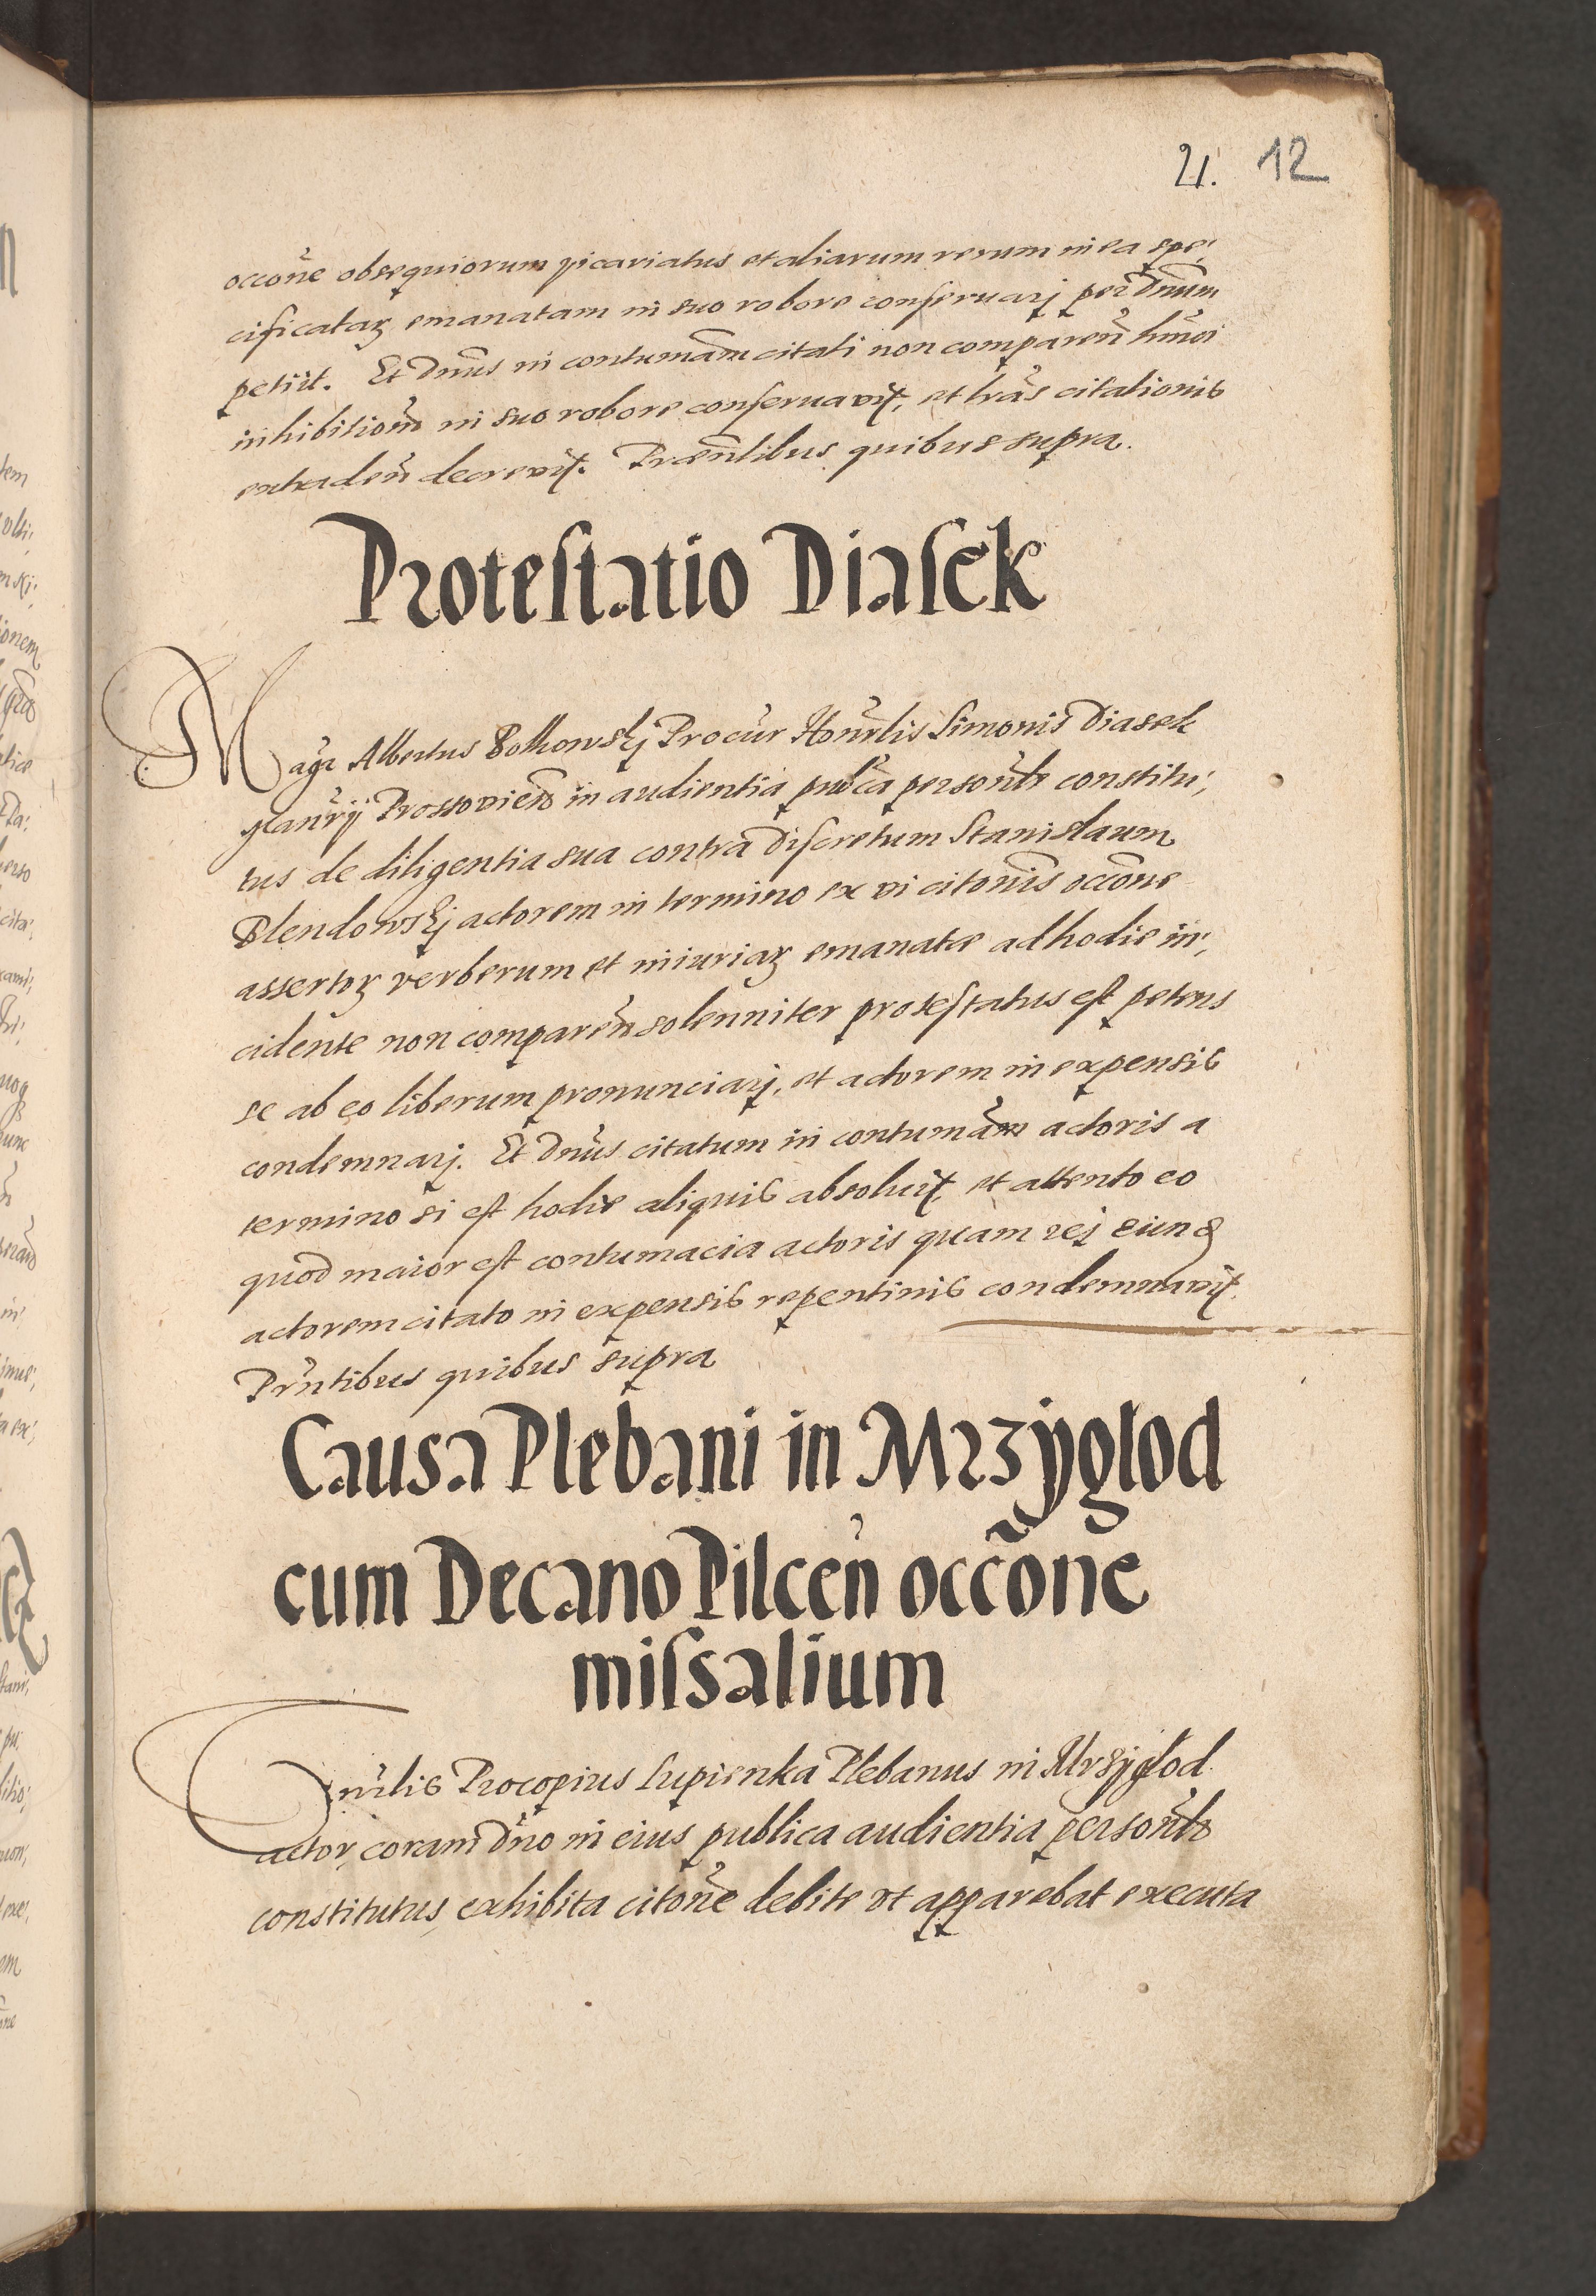 21. 12
occõne obsequiorum vicariatus et aliarum rerum in ea spe,
cificatarꝫ emanatam in suo robore conseruarj per Dnũm
petiit. Et Dnũs in contumãm citati non compareñ hmõi
inhibitioñ in suo robore conseruavit, et lrãs citationis
extradeñ decrevit. Præñtibus quibus supra.
Protestatio Diasek
Magr̃ Albertus Bolkowskj Procũr Honr̃lis Simonis Diasek
Prossovieñ in audientia publ̃ca personl̃r constitu,
tus de diligentia sua contra Discretum Stanislaum
Blendowskj actorem in termino ex vi citõnis occõne
assertorꝫ verberum et iniuriarꝫ emanatæ ad hodie in,
cidente non compareñ solenniter protestatus est petens
se ab eo liberum pronunciarj, et actorem in expensis
condemnarj. Et Dnũs citatum in contumãm actoris a
termino si est hodie aliquis absoluit, et attento eo
quod maior est contumacia actoris quam rej eundꝫ
actorem citato in expensis repentinis condemnavit.
Prñtibus quibus supra
Causa Plebani in Mrzyglod
cum Decano Pilceñ occõne
missalium
Procopius Lupienka Plebanus in Mrzyglod
actor, coram Dño in eius publica audientia personl̃r
constitutus, exhibita citõne debite vt apparebat executa